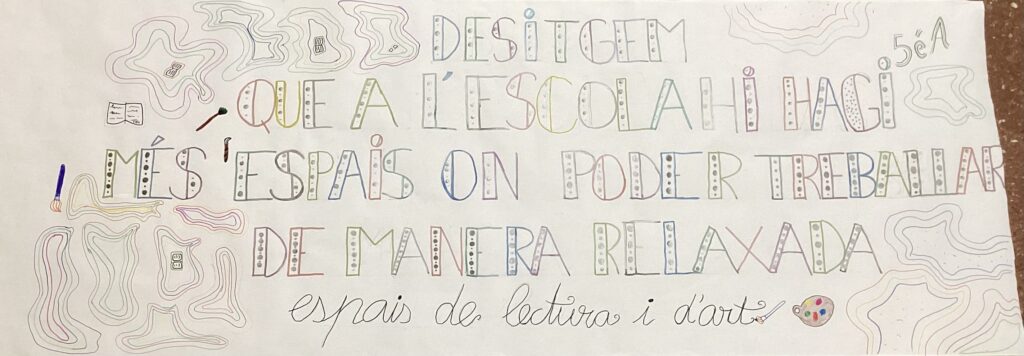 DESITGEM
5é A
QUE A L'ESCOLA HI HAGI
MÉS ESPAIS ON PODER TREBALLAR
DE MANERA RELAXADA
espais de lectura i d'art